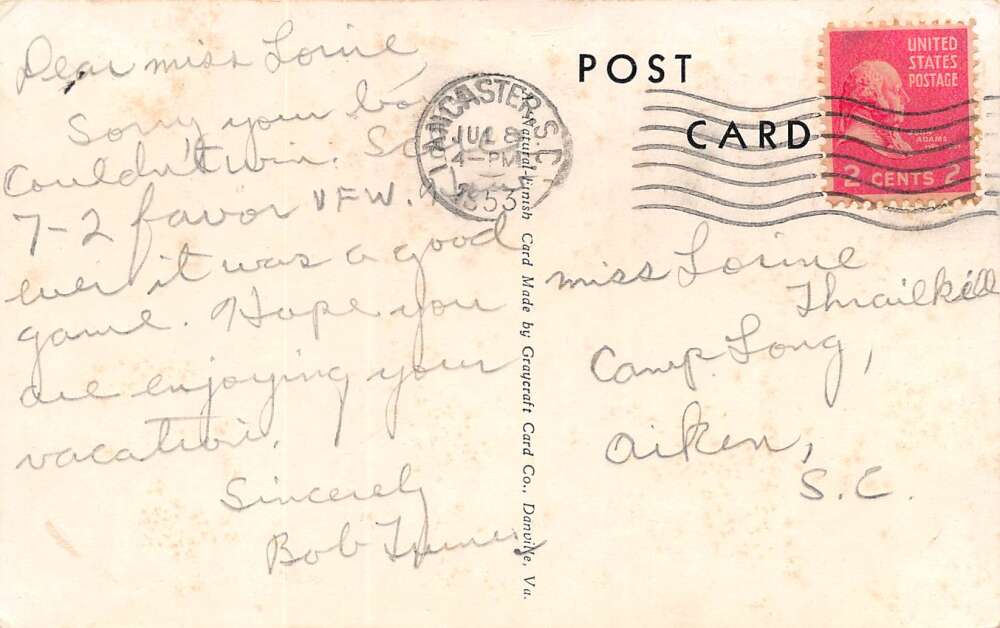 Dear miss Lorine
Sorry your boy
Couldn't win.
7-2 favor VFW.
ever it was a good
game. Hope you
are enjoying your
vacation.
Sincerely
Bob
LANCASTER, S.C.
JUL 8
4-PM
1953
Natural-Finish Card Made by Graycraft Card Co., Danville, Va.
POST
CARD
UNITED
STATES
POSTAGE
ADAMS
2 CENTS 2
miss Lorine
Thrailkill
Camp Long,
Aiken,
S.C.